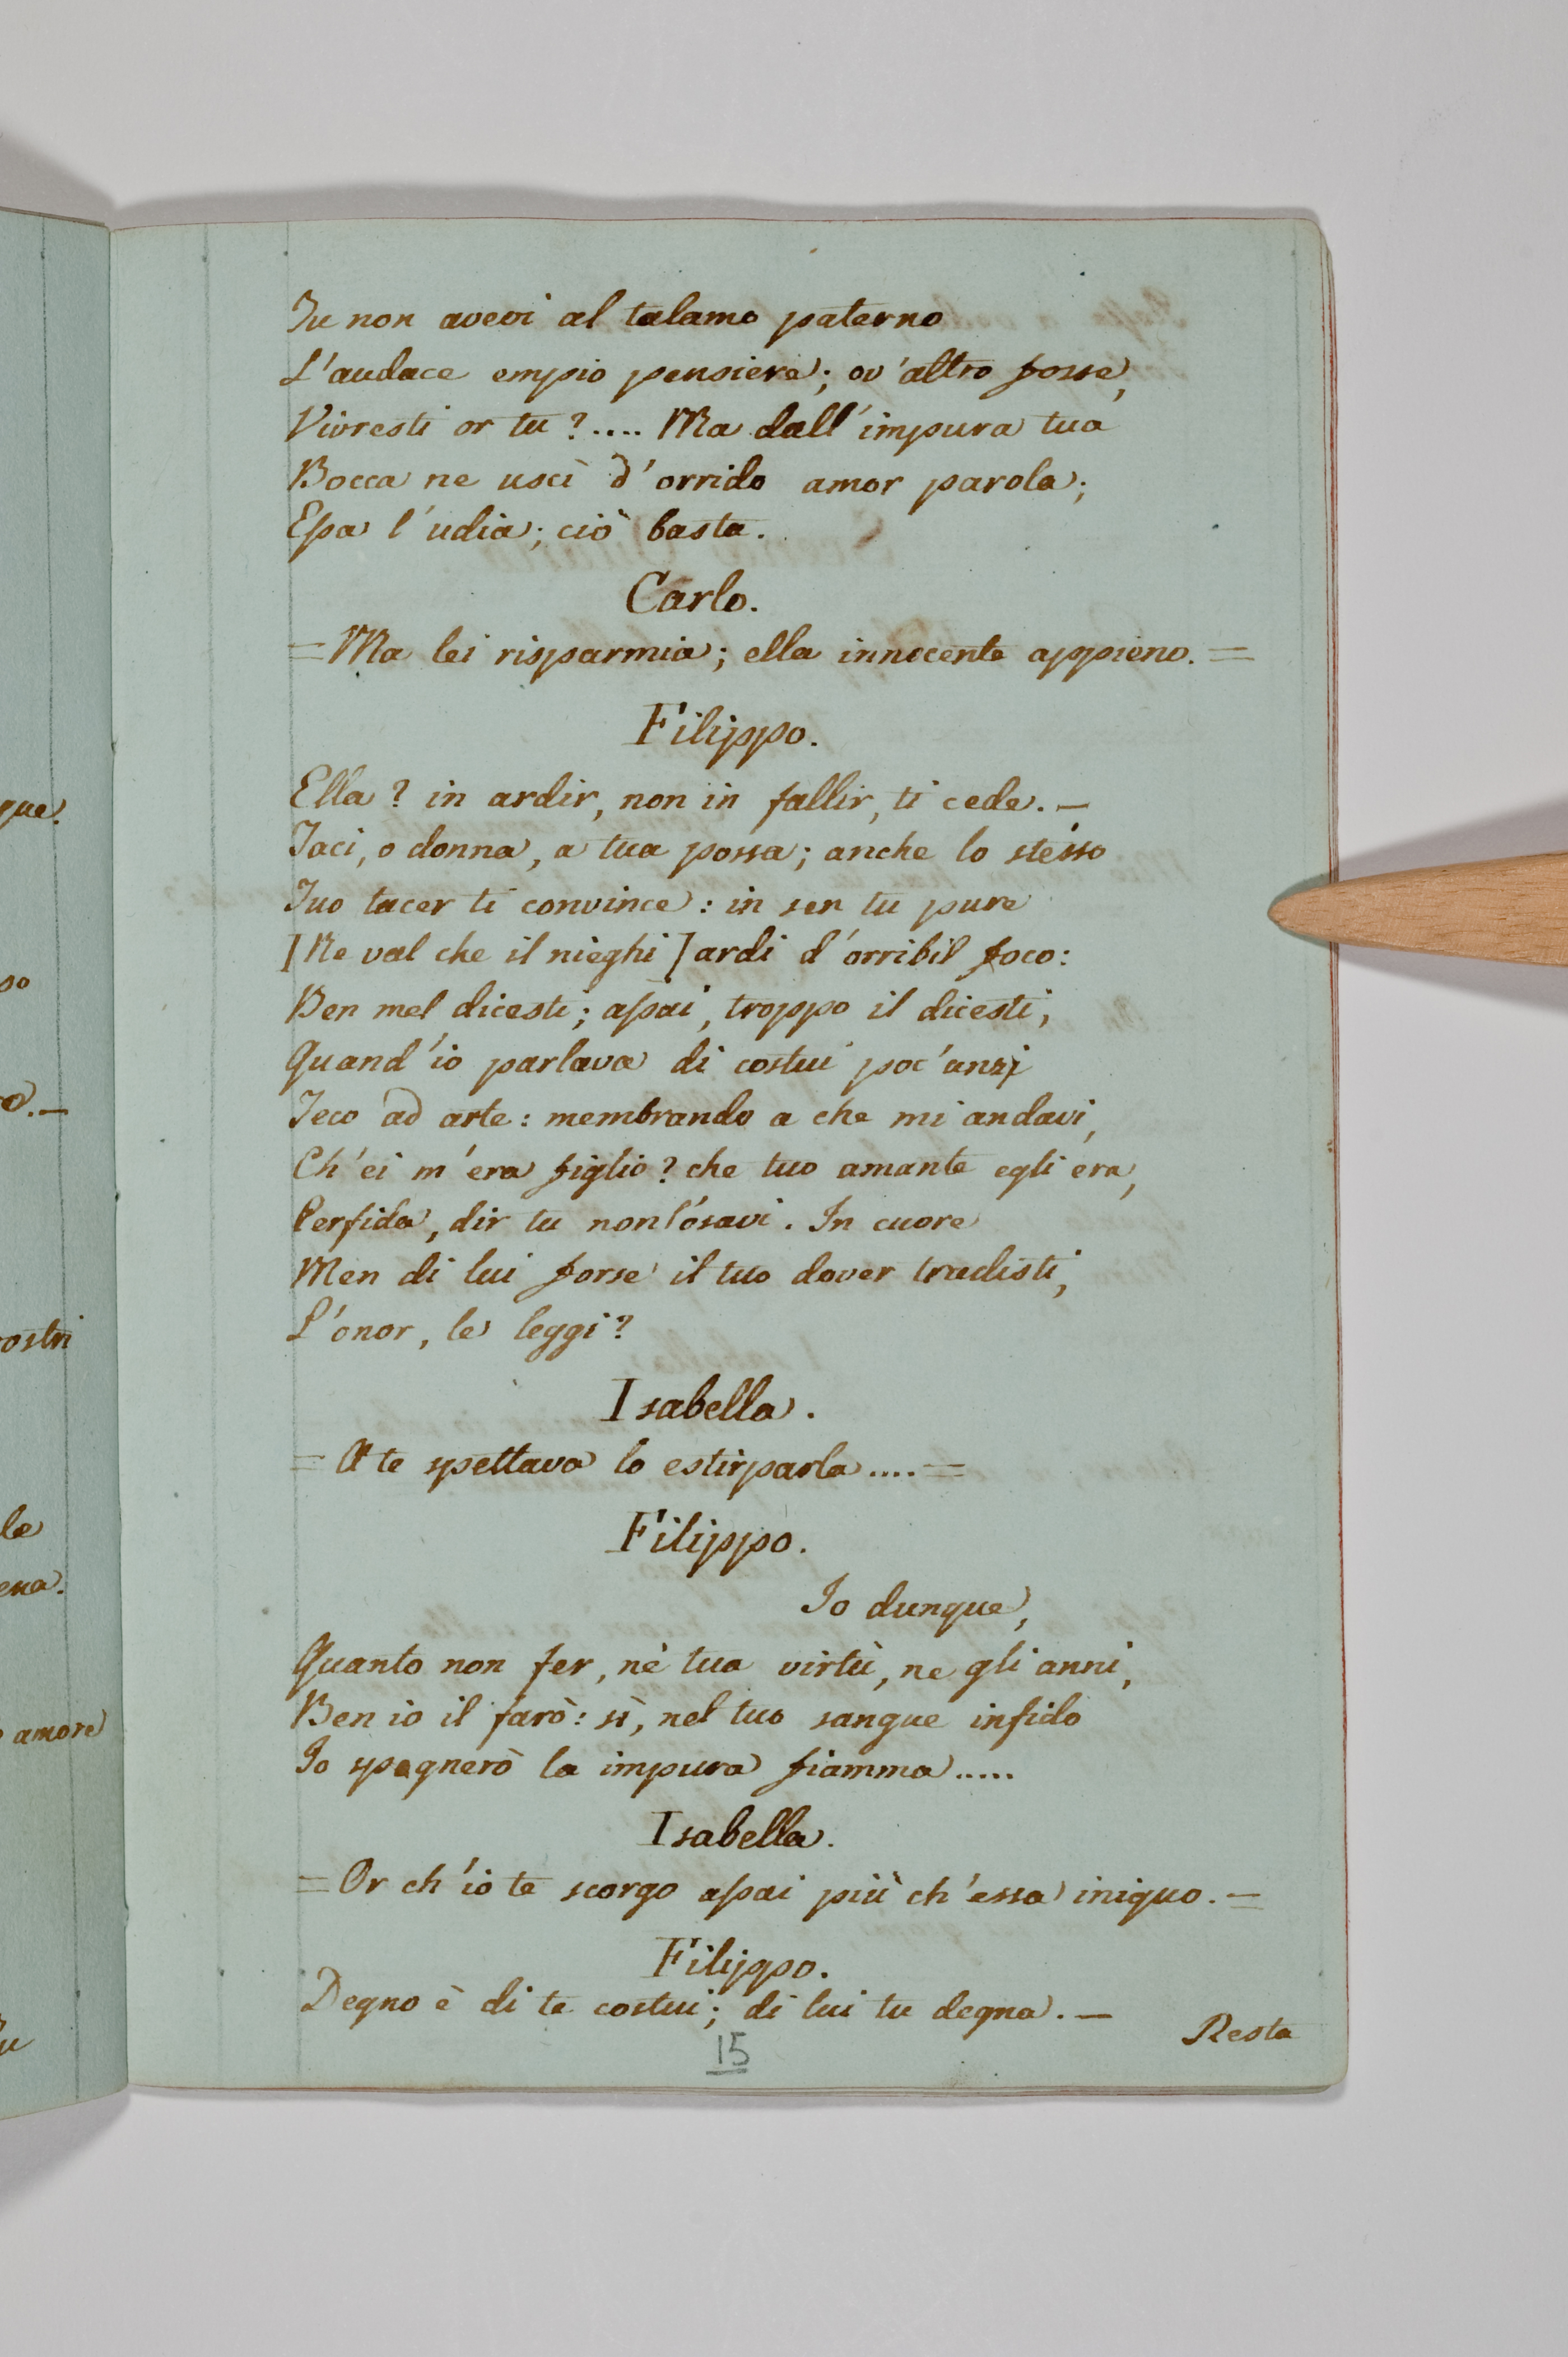 Tu non avevi al talamo paterno
L'audace empio pensiere; ov'altro fosse,
Vivresti or tu?.... Ma dall'impura tua
Bocca ne uscì d'orrido amor parola;
Essa l'udia; ciò basta.
Carlo.
= Ma lei risparmia; ella innocente appieno. =
Filippo.
Ella? in ardir, non in fallir, ti cede. —
Taci, o donna, a tua possa; anche lo stesso
Tuo tacer ti convince: in sen tu pure
[Ne val che il nieghi] ardi d'orribil foco:
Ben mel dicesti; assai, troppo il dicesti,
Quand'io parlava di costui poc'anzi
Teco ad arte: membrando a che mi andavi,
Ch'ei m'era figlio? che tuo amante egli era,
Perfida, dir tu non l'osavi. In cuore
Men di lui forse il tuo dover tradisti,
L'onor, le leggi?
Isabella.
= A te spettava lo estirparla.... =
Filippo.
Io dunque,
Quanto non fer, nè tua virtù, ne gli anni,
Ben io il farò: sì, nel tuo sangue infido
Io spegnerò la impura fiamma.....
Isabella.
= Or ch'io te scorgo assai più ch'essa iniquo. =
Filippo.
Degno è di te costui; di lui tu degna. —
Resta
15
que.
so
o. —
ostri
le
ena.
amore